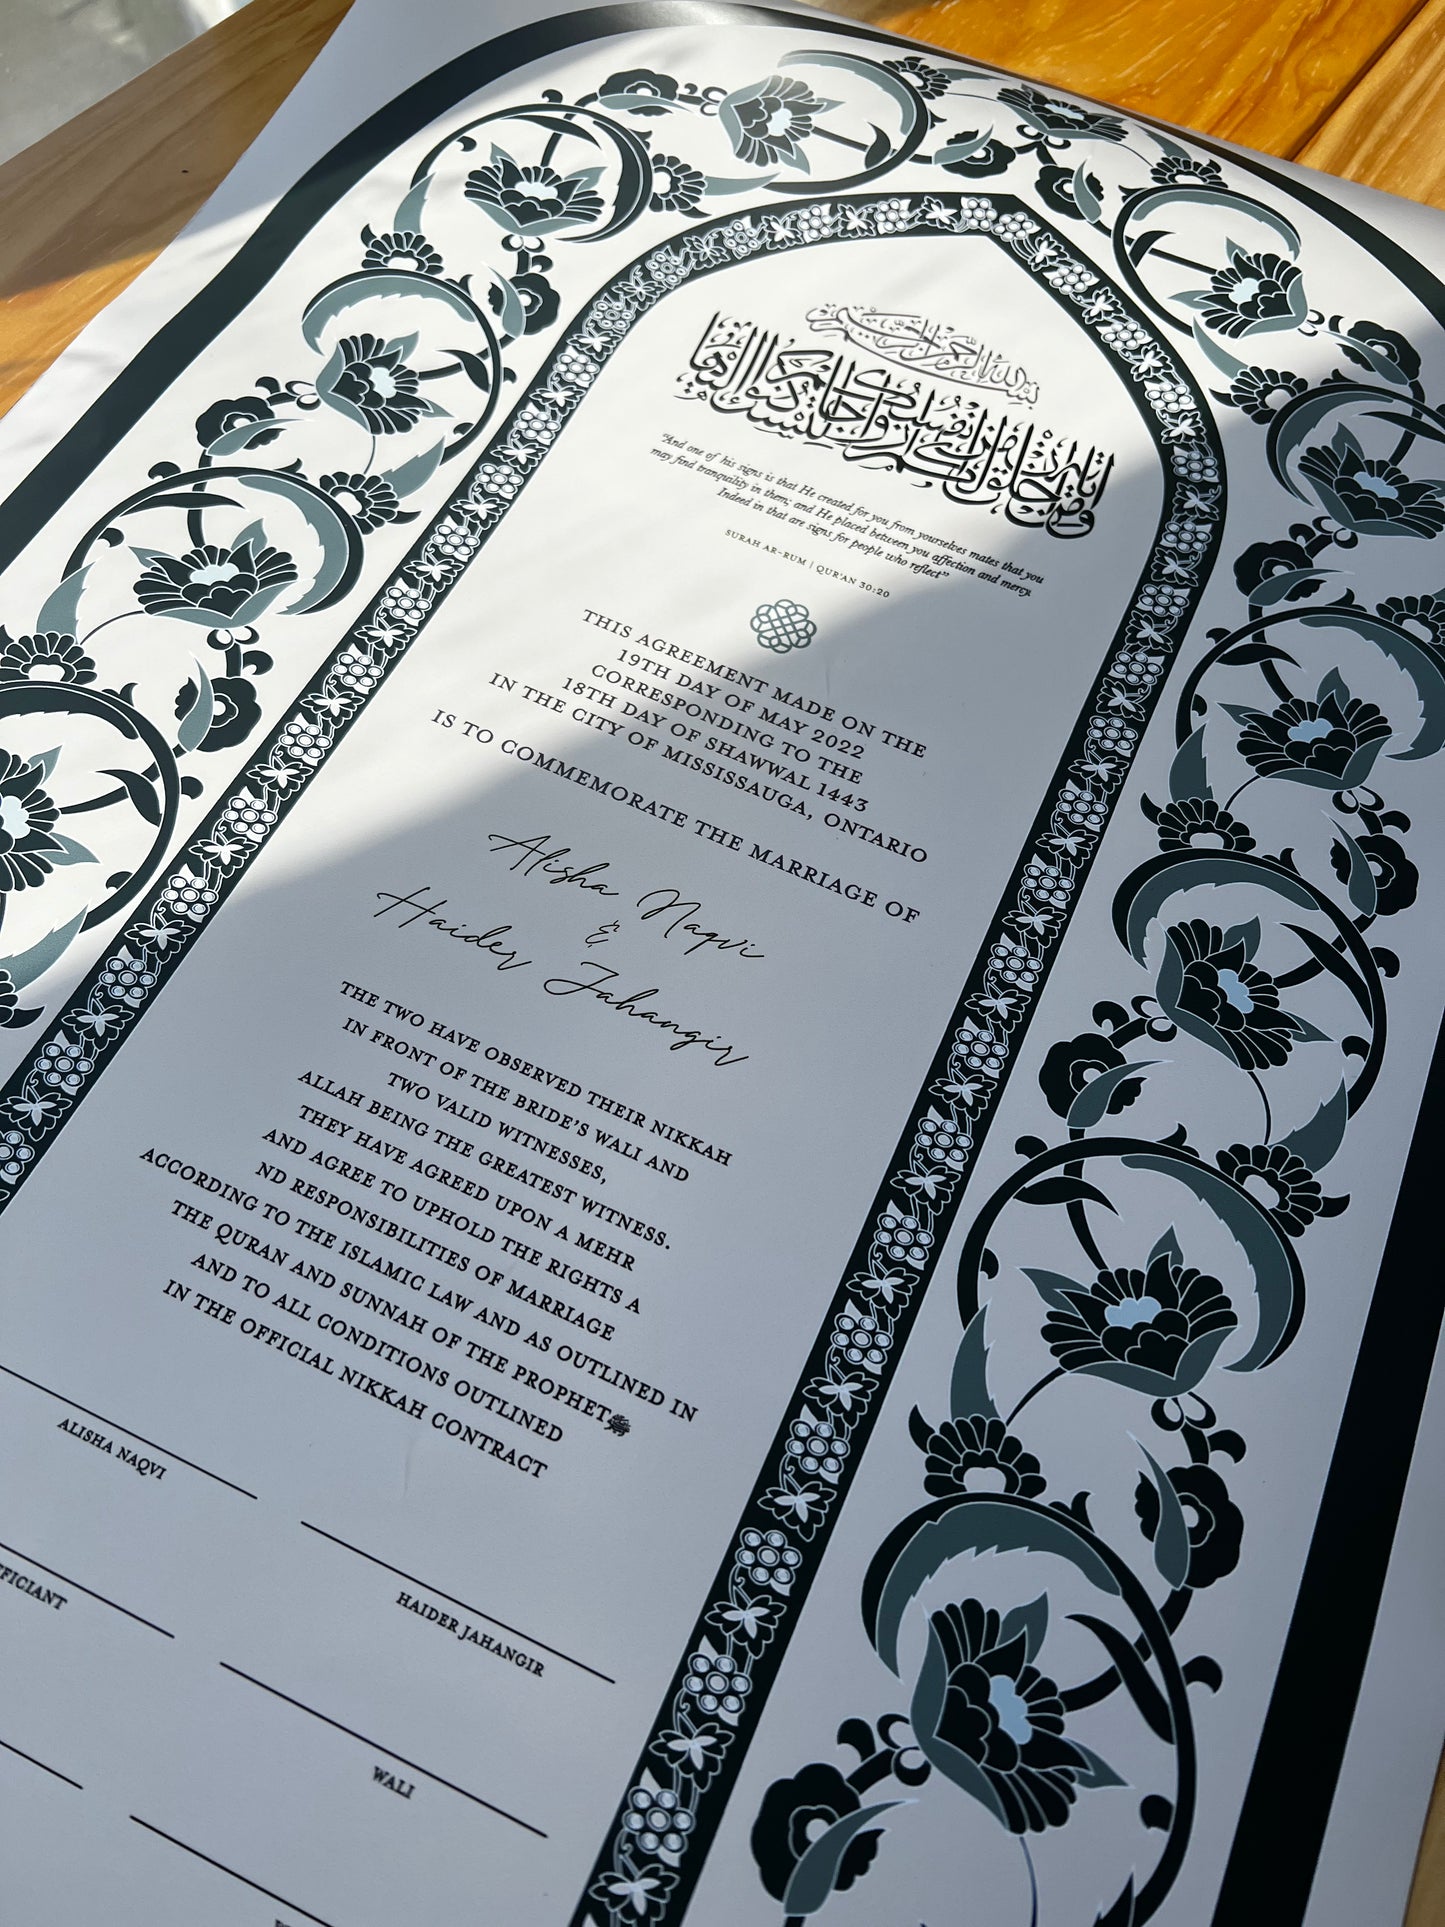 بسم الله الرحمن الرحيم
ومن آياته أن خلق لكم من أنفسكم أزواجا لتسكنوا إليها
“And one of his signs is that He created for you from yourselves mates that you
may find tranquility in them; and He placed between you affection and mercy.
Indeed in that are signs for people who reflect”
SURAH AR-RUM | QUR'AN 30:20
THIS AGREEMENT MADE ON THE
19TH DAY OF MAY 2022
CORRESPONDING TO THE
18TH DAY OF SHAWWAL 1443
IN THE CITY OF MISSISSAUGA, ONTARIO
IS TO COMMEMORATE THE MARRIAGE OF
Alisha Naqvi
&
Haider Jahangir
THE TWO HAVE OBSERVED THEIR NIKKAH
IN FRONT OF THE BRIDE'S WALI AND
TWO VALID WITNESSES,
ALLAH BEING THE GREATEST WITNESS.
THEY HAVE AGREED UPON A MEHR
AND AGREE TO UPHOLD THE RIGHTS A
ND RESPONSIBILITIES OF MARRIAGE
ACCORDING TO THE ISLAMIC LAW AND AS OUTLINED IN
THE QURAN AND SUNNAH OF THE PROPHETﷺ
AND TO ALL CONDITIONS OUTLINED
IN THE OFFICIAL NIKKAH CONTRACT
ALISHA NAQVI
HAIDER JAHANGIR
FFICIANT
WALI